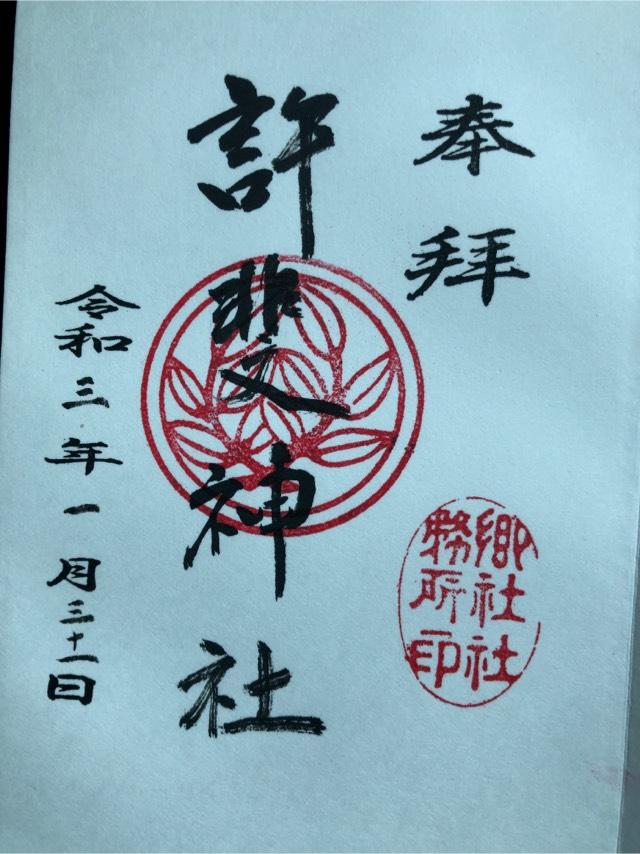 奉拝
許斐神社
令和三年一月三十一日
郷社社
務所印